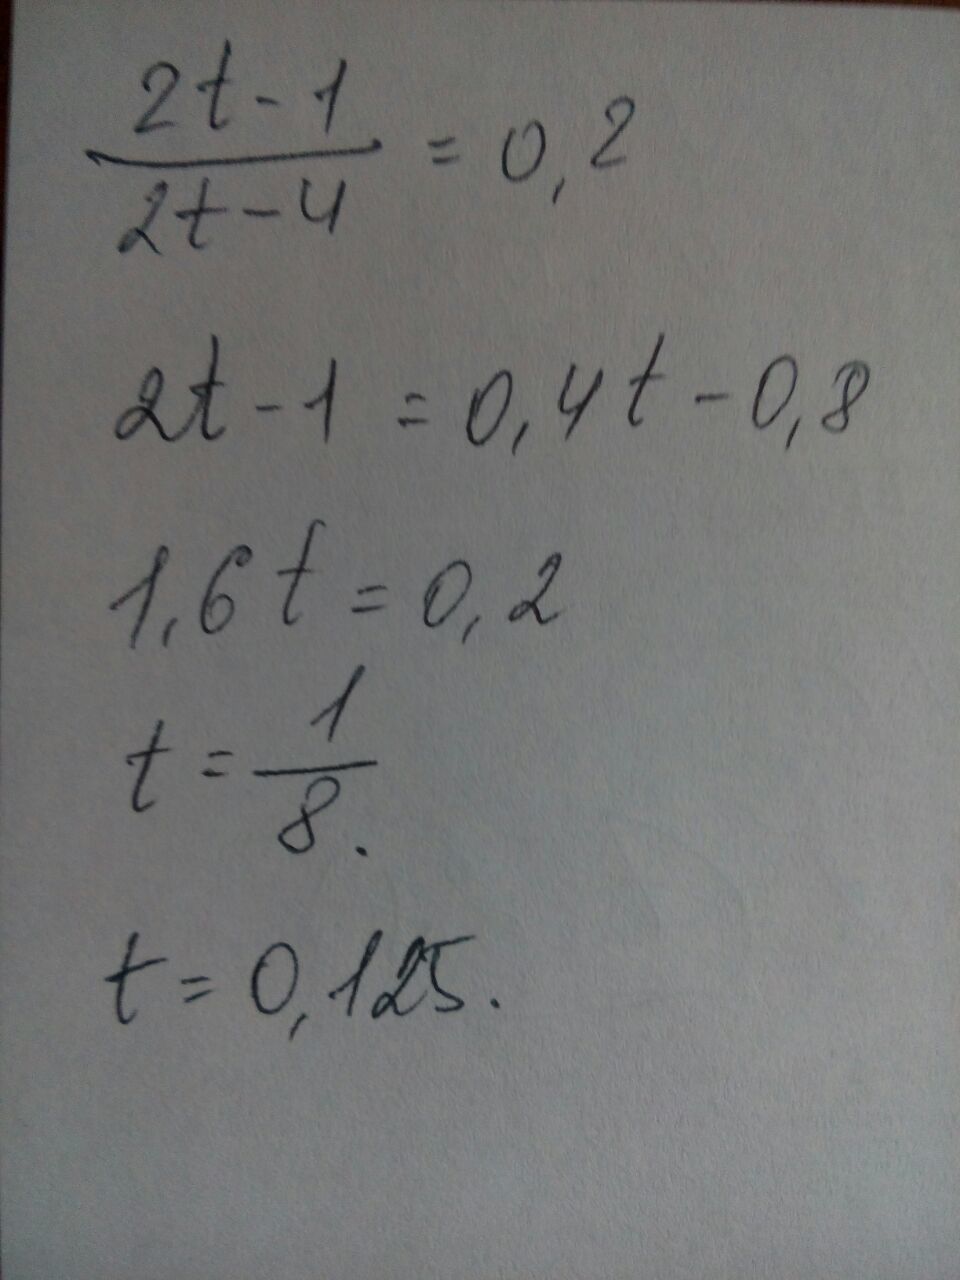 2t-1
─── = 0,2
2t-4
2t-1 = 0,4t-0,8
1,6t = 0,2
t = 1/8.
t = 0,125.